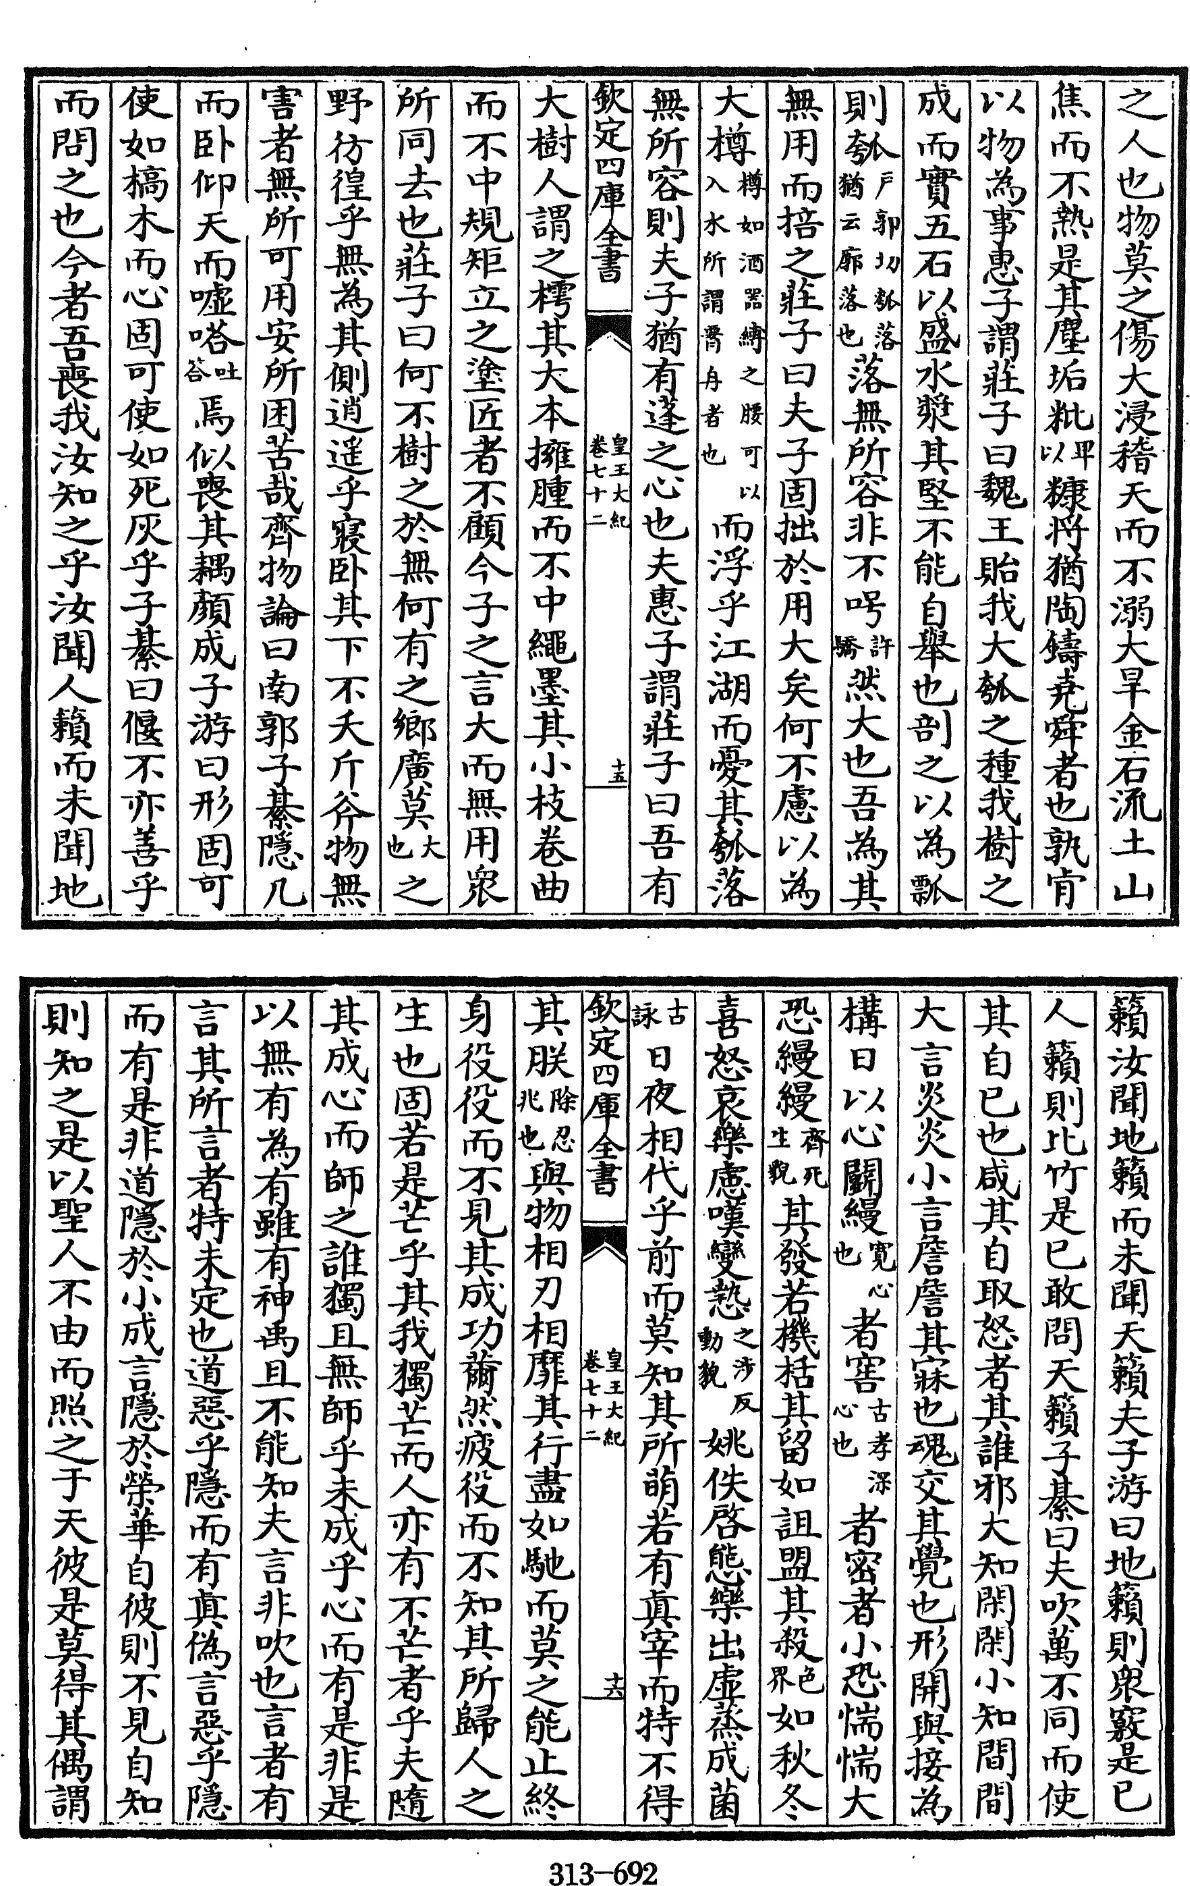 之人也物莫之傷大浸稽天而不溺大旱金石流土山
焦而不熱是其塵垢粃卑以糠將猶陶鑄堯舜者也孰肯
以物為事惠子謂莊子曰魏王貽我大瓠之種我樹之
成而實五石以盛水漿其堅不能自舉也剖之以為瓢
則瓠戶郭切瓠落猶云廓落也落無所容非不呺許驕然大也吾為其
無用而掊之莊子曰夫子固拙於用大矣何不慮以為
大樽樽如酒器縛之腰可以入水所謂舟者也而浮乎江湖而憂其瓠落
無所容則夫子猶有蓬之心也夫惠子謂莊子曰吾有
欽定四庫全書
皇王大紀
卷七十二
十五
大樹人謂之樗其大本擁腫而不中繩墨其小枝卷曲
而不中規矩立之塗匠者不顧今子之言大而無用衆
所同去也莊子曰何不樹之於無何有之鄉廣莫大也之
野彷徨乎無為其側逍遥乎寢卧其下不夭斤斧物無
害者無所可用安所困苦哉齊物論曰南郭子綦隱几
而卧仰天而噓嗒吐答焉似喪其耦顏成子游曰形固可
使如槁木而心固可使如死灰乎子綦曰偃不亦善乎
而問之也今者吾喪我汝知之乎汝聞人籟而未聞地
籟汝聞地籟而未聞天籟夫子游曰地籟則衆竅是已
人籟則比竹是已敢問天籟子綦曰夫吹萬不同而使
其自已也咸其自取怒者其誰邪大知閑閑小知間間
大言炎炎小言詹詹其寐也魂交其覺也形開與接為
構日以心鬭縵寛心也者窖古孝深心也者密者小恐惴惴大
恐縵縵齊死生貌其發若機括其留如詛盟其殺色界如秋冬
喜怒哀樂慮嘆變慹之涉反動貌姚佚啓態樂出虚蒸成菌
古詠日夜相代乎前而莫知其所萌若有真宰而特不得
欽定四庫全書
皇王大紀
卷七十二
十六
其朕除忍兆也與物相刃相靡其行盡如馳而莫之能止終
身役役而不見其成功薾然疲役而不知其所歸人之
生也固若是芒乎其我獨芒而人亦有不芒者乎夫隨
其成心而師之誰獨且無師乎未成乎心而有是非是
以無有為有雖有神禹且不能知夫言非吹也言者有
言其所言者特未定也道惡乎隱而有真偽言惡乎隱
而有是非道隱於小成言隱於榮華自彼則不見自知
則知之是以聖人不由而照之于天彼是莫得其偶謂
313-692